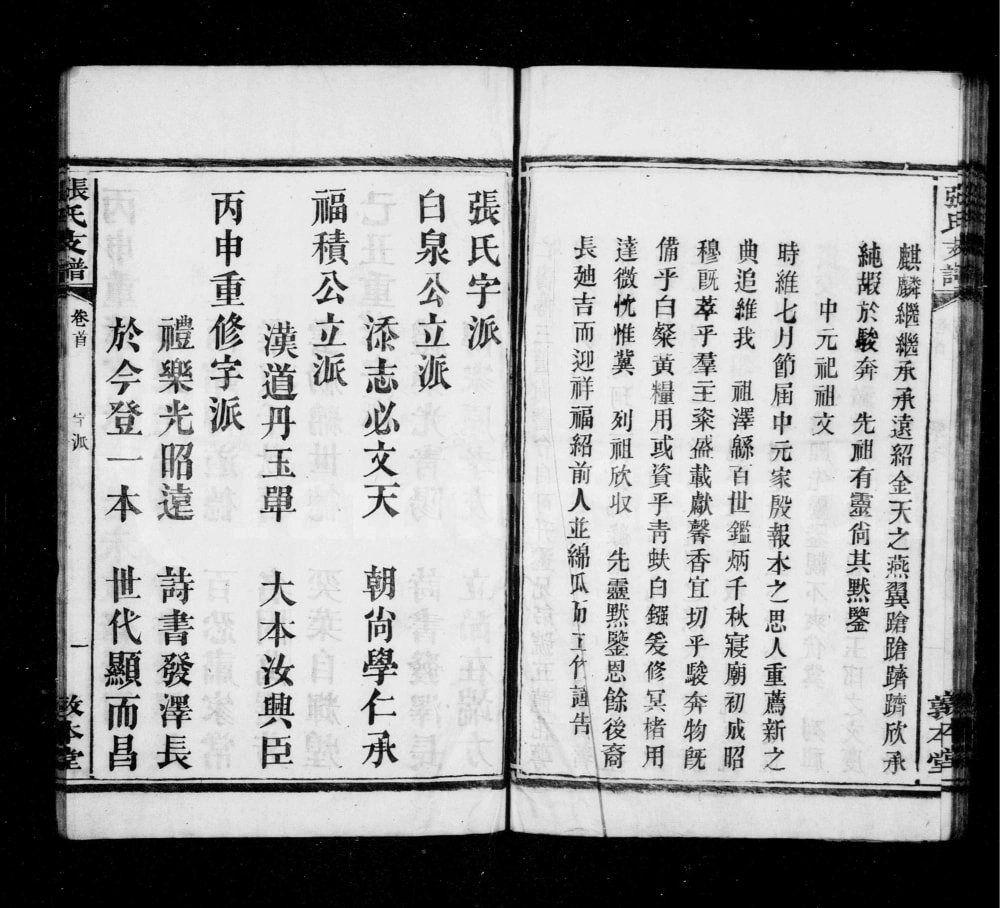 張氏支譜
敦本堂
麒麟繼繼承承遠紹金天之燕翼蹌蹌躋躋欣承
純嘏於駿奔　先祖有靈尙其默鑒
中元祀祖文
時維七月節届中元家殷報本之思人重薦新之
典追維我　祖澤緜百世鑑炳千秋寢廟初成昭
穆旣萃乎羣主粢盛載獻馨香宜切乎駿奔物旣
備乎白粲黃糧用或資乎青蚨白鏹爰修冥楮用
達微忱惟冀　列祖欣收　先靈默鑒恩餘後裔
長廸吉而迎祥福紹前人並綿瓜
張氏字派
白泉公立派
添志必文天　朝尙學仁承
福積公立派
漢道丹玉單　大本汝興臣
丙申重修字派
禮樂光昭遠　詩書發澤長
於今登一本　世代顯而昌
張氏支譜　卷首　字派　一　敦本堂